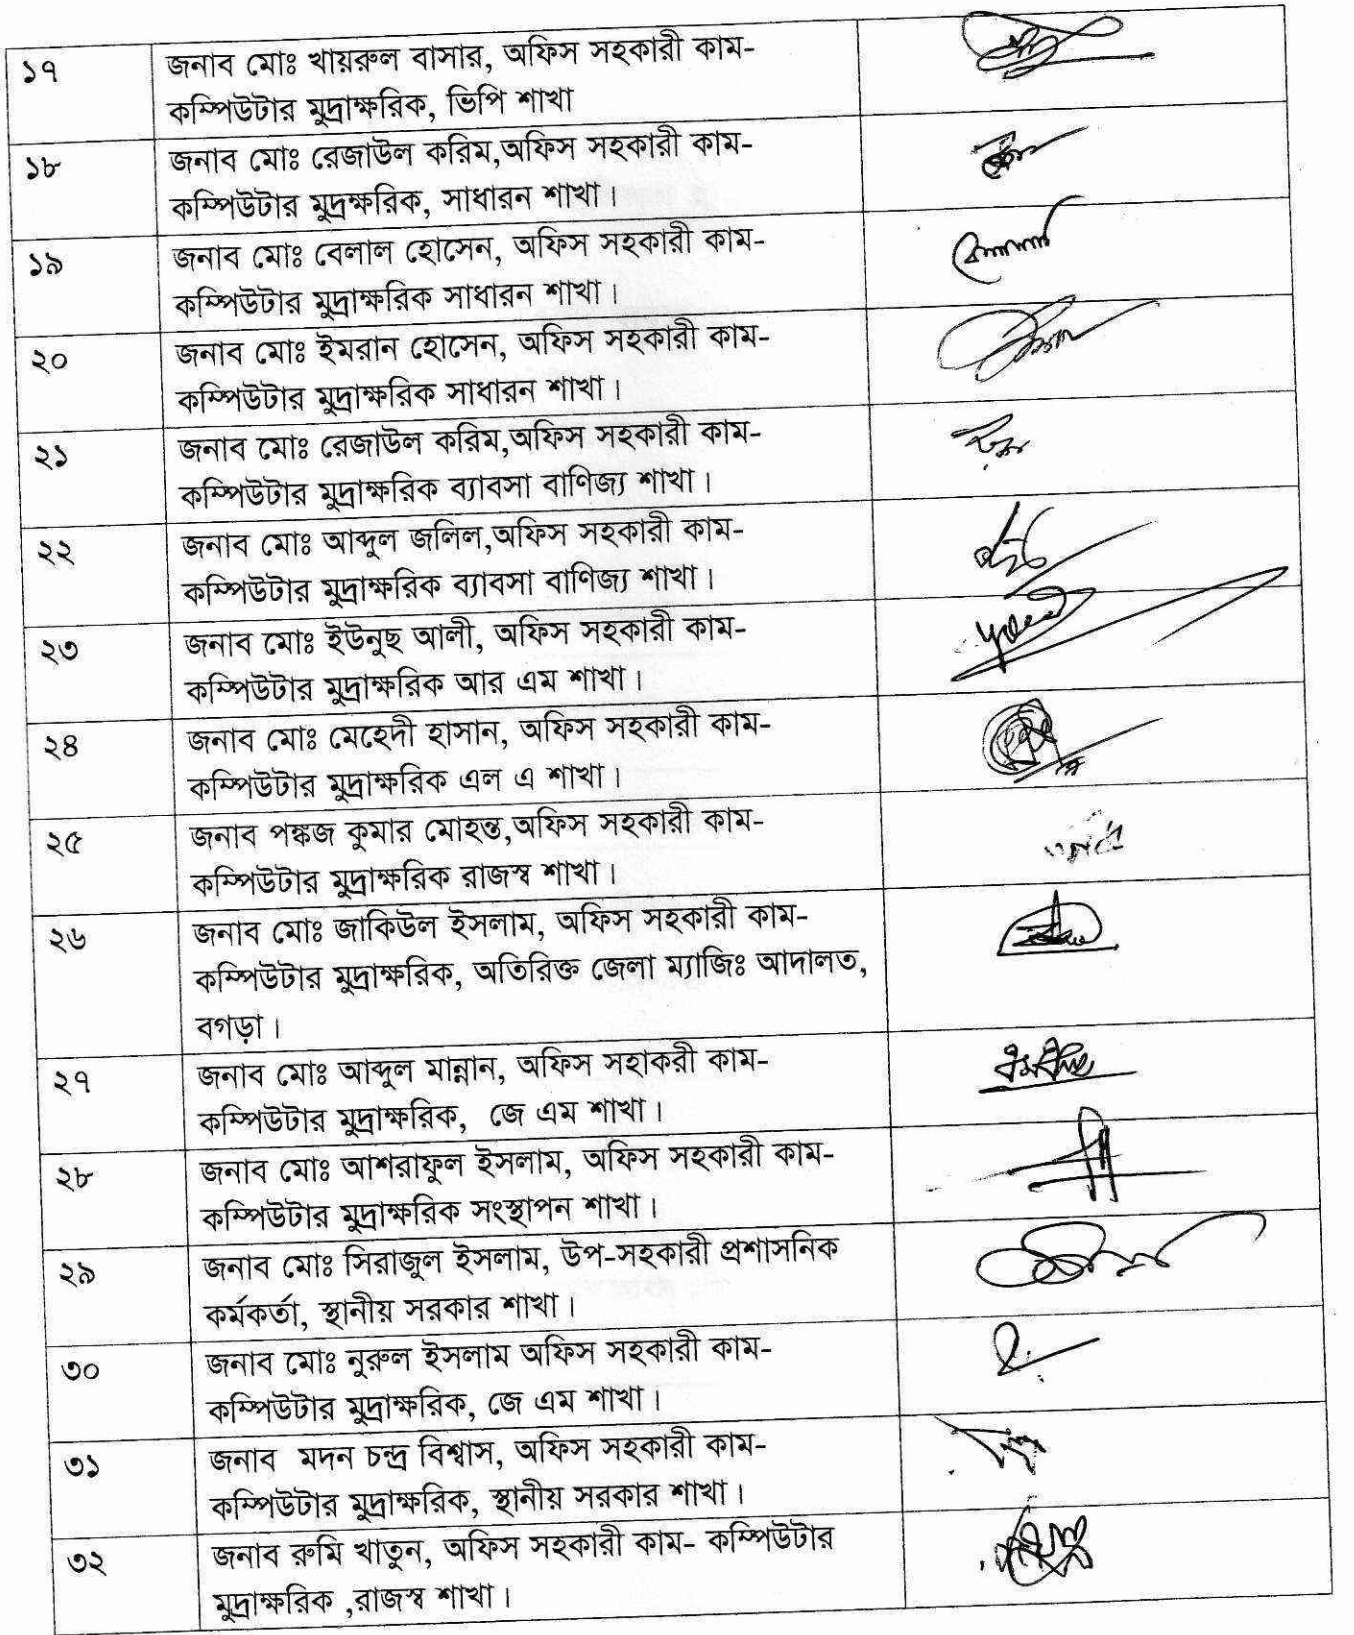 ১৭ জনাব মোঃ খায়রুল বাসার, অফিস সহকারী কাম-
কম্পিউটার মুদ্রাক্ষরিক, ভিপি শাখা
১৮ জনাব মোঃ রেজাউল করিম,অফিস সহকারী কাম-
কম্পিউটার মুদ্রক্ষরিক, সাধারন শাখা।
১৯ জনাব মোঃ বেলাল হোসেন, অফিস সহকারী কাম-
কম্পিউটার মুদ্রাক্ষরিক সাধারন শাখা।
২০ জনাব মোঃ ইমরান হোসেন, অফিস সহকারী কাম-
কম্পিউটার মুদ্রাক্ষরিক সাধারন শাখা।
২১ জনাব মোঃ রেজাউল করিম,অফিস সহকারী কাম-
কম্পিউটার মুদ্রাক্ষরিক ব্যাবসা বাণিজ্য শাখা।
২২ জনাব মোঃ আব্দুল জলিল,অফিস সহকারী কাম-
কম্পিউটার মুদ্রাক্ষরিক ব্যাবসা বাণিজ্য শাখা।
২৩ জনাব মোঃ ইউনুছ আলী, অফিস সহকারী কাম-
কম্পিউটার মুদ্রাক্ষরিক আর এম শাখা।
২৪ জনাব মোঃ মেহেদী হাসান, অফিস সহকারী কাম-
কম্পিউটার মুদ্রাক্ষরিক এল এ শাখা।
২৫ জনাব পঙ্কজ কুমার মোহন্ত,অফিস সহকারী কাম-
কম্পিউটার মুদ্রাক্ষরিক রাজস্ব শাখা।
২৬ জনাব মোঃ জাকিউল ইসলাম, অফিস সহকারী কাম-
কম্পিউটার মুদ্রাক্ষরিক, অতিরিক্ত জেলা ম্যাজিঃ আদালত,
বগড়া।
২৭ জনাব মোঃ আব্দুল মান্নান, অফিস সহাকরী কাম-
কম্পিউটার মুদ্রাক্ষরিক, জে এম শাখা।
২৮ জনাব মোঃ আশরাফুল ইসলাম, অফিস সহকারী কাম-
কম্পিউটার মুদ্রাক্ষরিক সংস্থাপন শাখা।
২৯ জনাব মোঃ সিরাজুল ইসলাম, উপ-সহকারী প্রশাসনিক
কর্মকর্তা, স্থানীয় সরকার শাখা।
৩০ জনাব মোঃ নুরুল ইসলাম অফিস সহকারী কাম-
কম্পিউটার মুদ্রাক্ষরিক, জে এম শাখা।
৩১ জনাব মদন চন্দ্র বিশ্বাস, অফিস সহকারী কাম-
কম্পিউটার মুদ্রাক্ষরিক, স্থানীয় সরকার শাখা।
৩২ জনাব রুমি খাতুন, অফিস সহকারী কাম- কম্পিউটার
মুদ্রাক্ষরিক ,রাজস্ব শাখা।